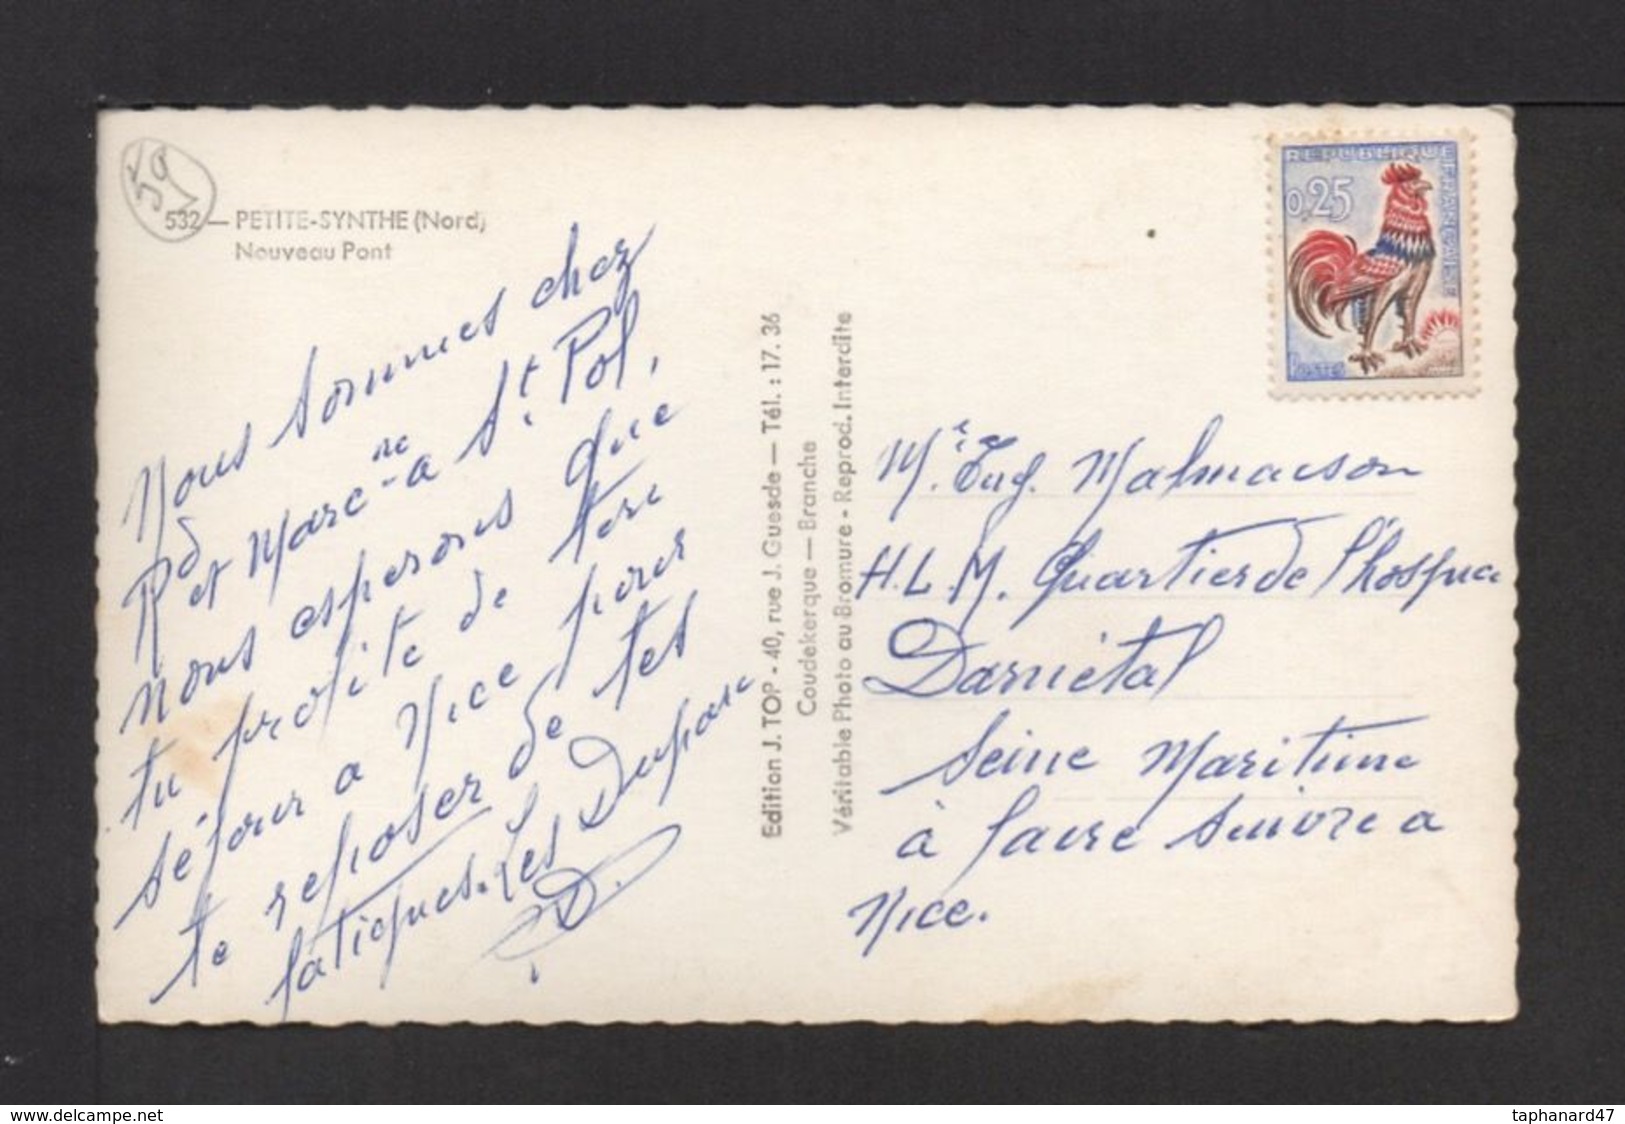 59
532 — PETITE-SYNTHE (Nord)
Nouveau Pont
Nous sommes chez
Rd et Marc ne - a St. Pol,
nous esperons que
tu profite de ton
séjour a Nice pour
te reposer de tes
fatigues. Les Dupare
D.
Edition J. TOP - 40, rue J. Guesde — Tél. : 17. 36
Coudekerque — Branche
Véritable Photo au Bromure - Reprod. Interdite
REPUBLIQUE FRANÇAISE
0,25
POSTES
Mr. Eug. Malmaison
H.L.M. Quartier de l'hospice
Darnétal
Seine Maritime
à faire suivre a
Nice.
www.delcampe.net
taphanard47